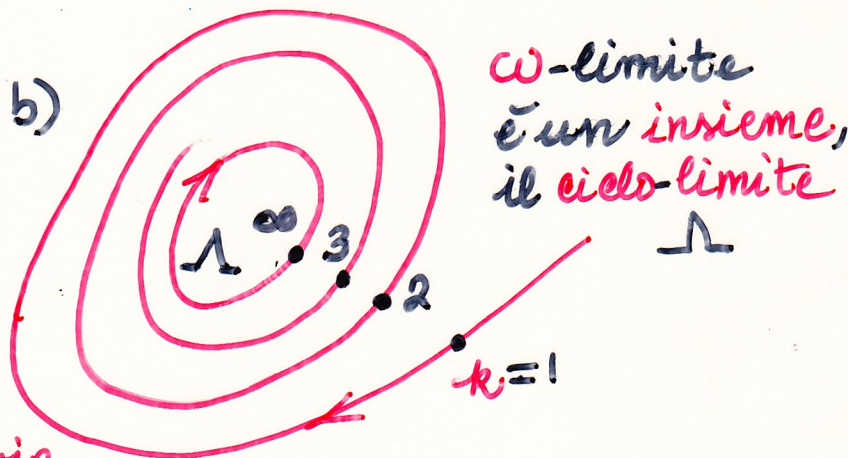 b)
ω-limite
è un insieme,
il ciclo-limite
Λ
Λ ∞ 3
2
k=1